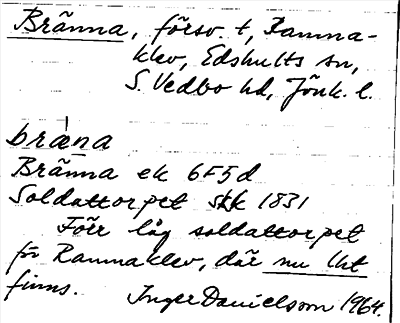 Bränna, försv. t, Ramna-
klev, Edshults sn,
S. Vedbo hd, Jönk. l.
bräna
Bränna ek 6F5d
Soldattorpet skk 1831
Förr låg soldattorpet
för Ramnaklev, där nu lht
finns. Inger Danielsson 1964.